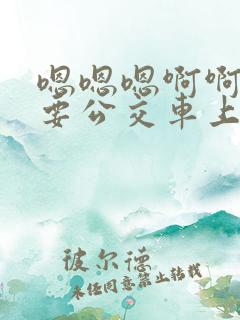 嗯嗯嗯啊啊
要公交車上
彼尔德
未任同意禁止转载